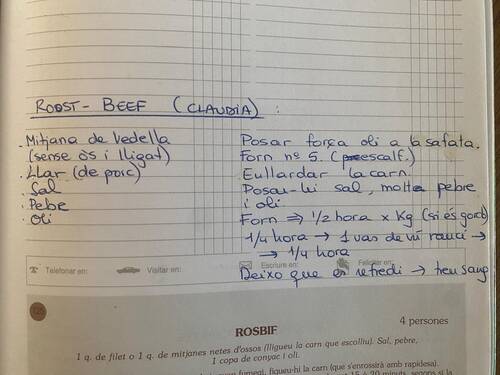 ROOST - BEEF (CLAUDIA) :
. Mitjana de Vedella
(sense os i lligat)
. Llar (de porc)
. Sal
. Pebe
. Oli
Posar força oli a la safata.
Forn nº 5. (preescalf.)
Eullardar la carn.
Posar-li sal, molta pebre
i oli.
Forn ⇒ 1/2 hora x Kg (si és gord)
1/4 hora → 1 vas de vi ranci →
→ 1/4 hora
Deixo que es refredi → treu sang
Telefonar en:
Visitar en:
Escriure en:
Felicitar en:
ROSBIF
4 persones
1 q. de filet o 1 q. de mitjanes netes d'ossos (lligueu la carn que escolliu). Sal, pebre,
1 copa de conyac i oli.
fumegi, fiqueu-hi la carn (que s'enrossirà amb rapidesa).
15 a 20 minuts, segons si la